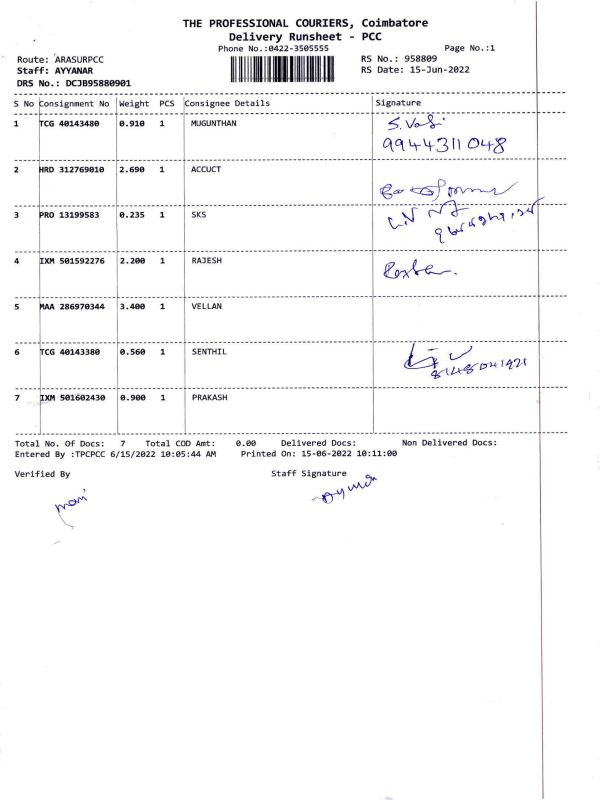 THE PROFESSIONAL COURIERS, Coimbatore
Delivery Runsheet - PCC
Phone No.:0422-3505555 Page No.:1
Route: ARASURPCC RS No.: 958809
Staff: AYYANAR RS Date: 15-Jun-2022
DRS No.: DCJB95880901
S No Consignment No Weight PCS Consignee Details Signature
1 TCG 40143480 0.910 1 MUGUNTHAN S.Vasi
9944311048
2 HRD 312769010 2.690 1 ACCUCT
3 PRO 13199583 0.235 1 SKS
4 IXM 501592276 2.200 1 RAJESH
5 MAA 286970344 3.400 1 VELLAN
6 TCG 40143380 0.560 1 SENTHIL
8148041921
7 IXM 501602430 0.900 1 PRAKASH
Total No. Of Docs: 7 Total COD Amt: 0.00 Delivered Docs: Non Delivered Docs:
Entered By :TPCPCC 6/15/2022 10:05:44 AM Printed On: 15-06-2022 10:11:00
Verified By Staff Signature
mani